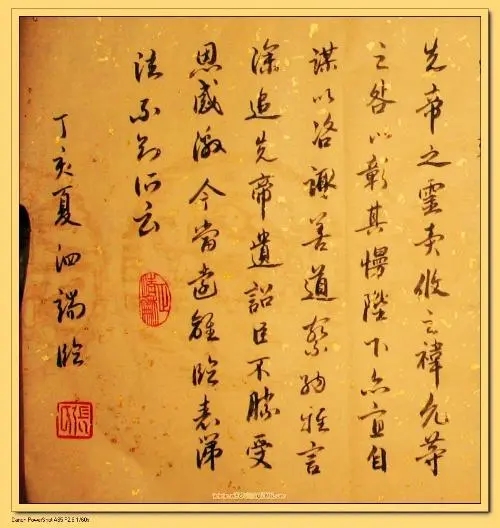 先帝之靈責攸之褘允等
之咎以彰其慢陛下亦宜自
謀以咨諏善道察納雅言
深追先帝遺詔臣不勝受
恩感激今當遠離臨表涕
泣不知所云
丁亥夏泗端臨
Canon PowerShot A95 F2.8 1/60s